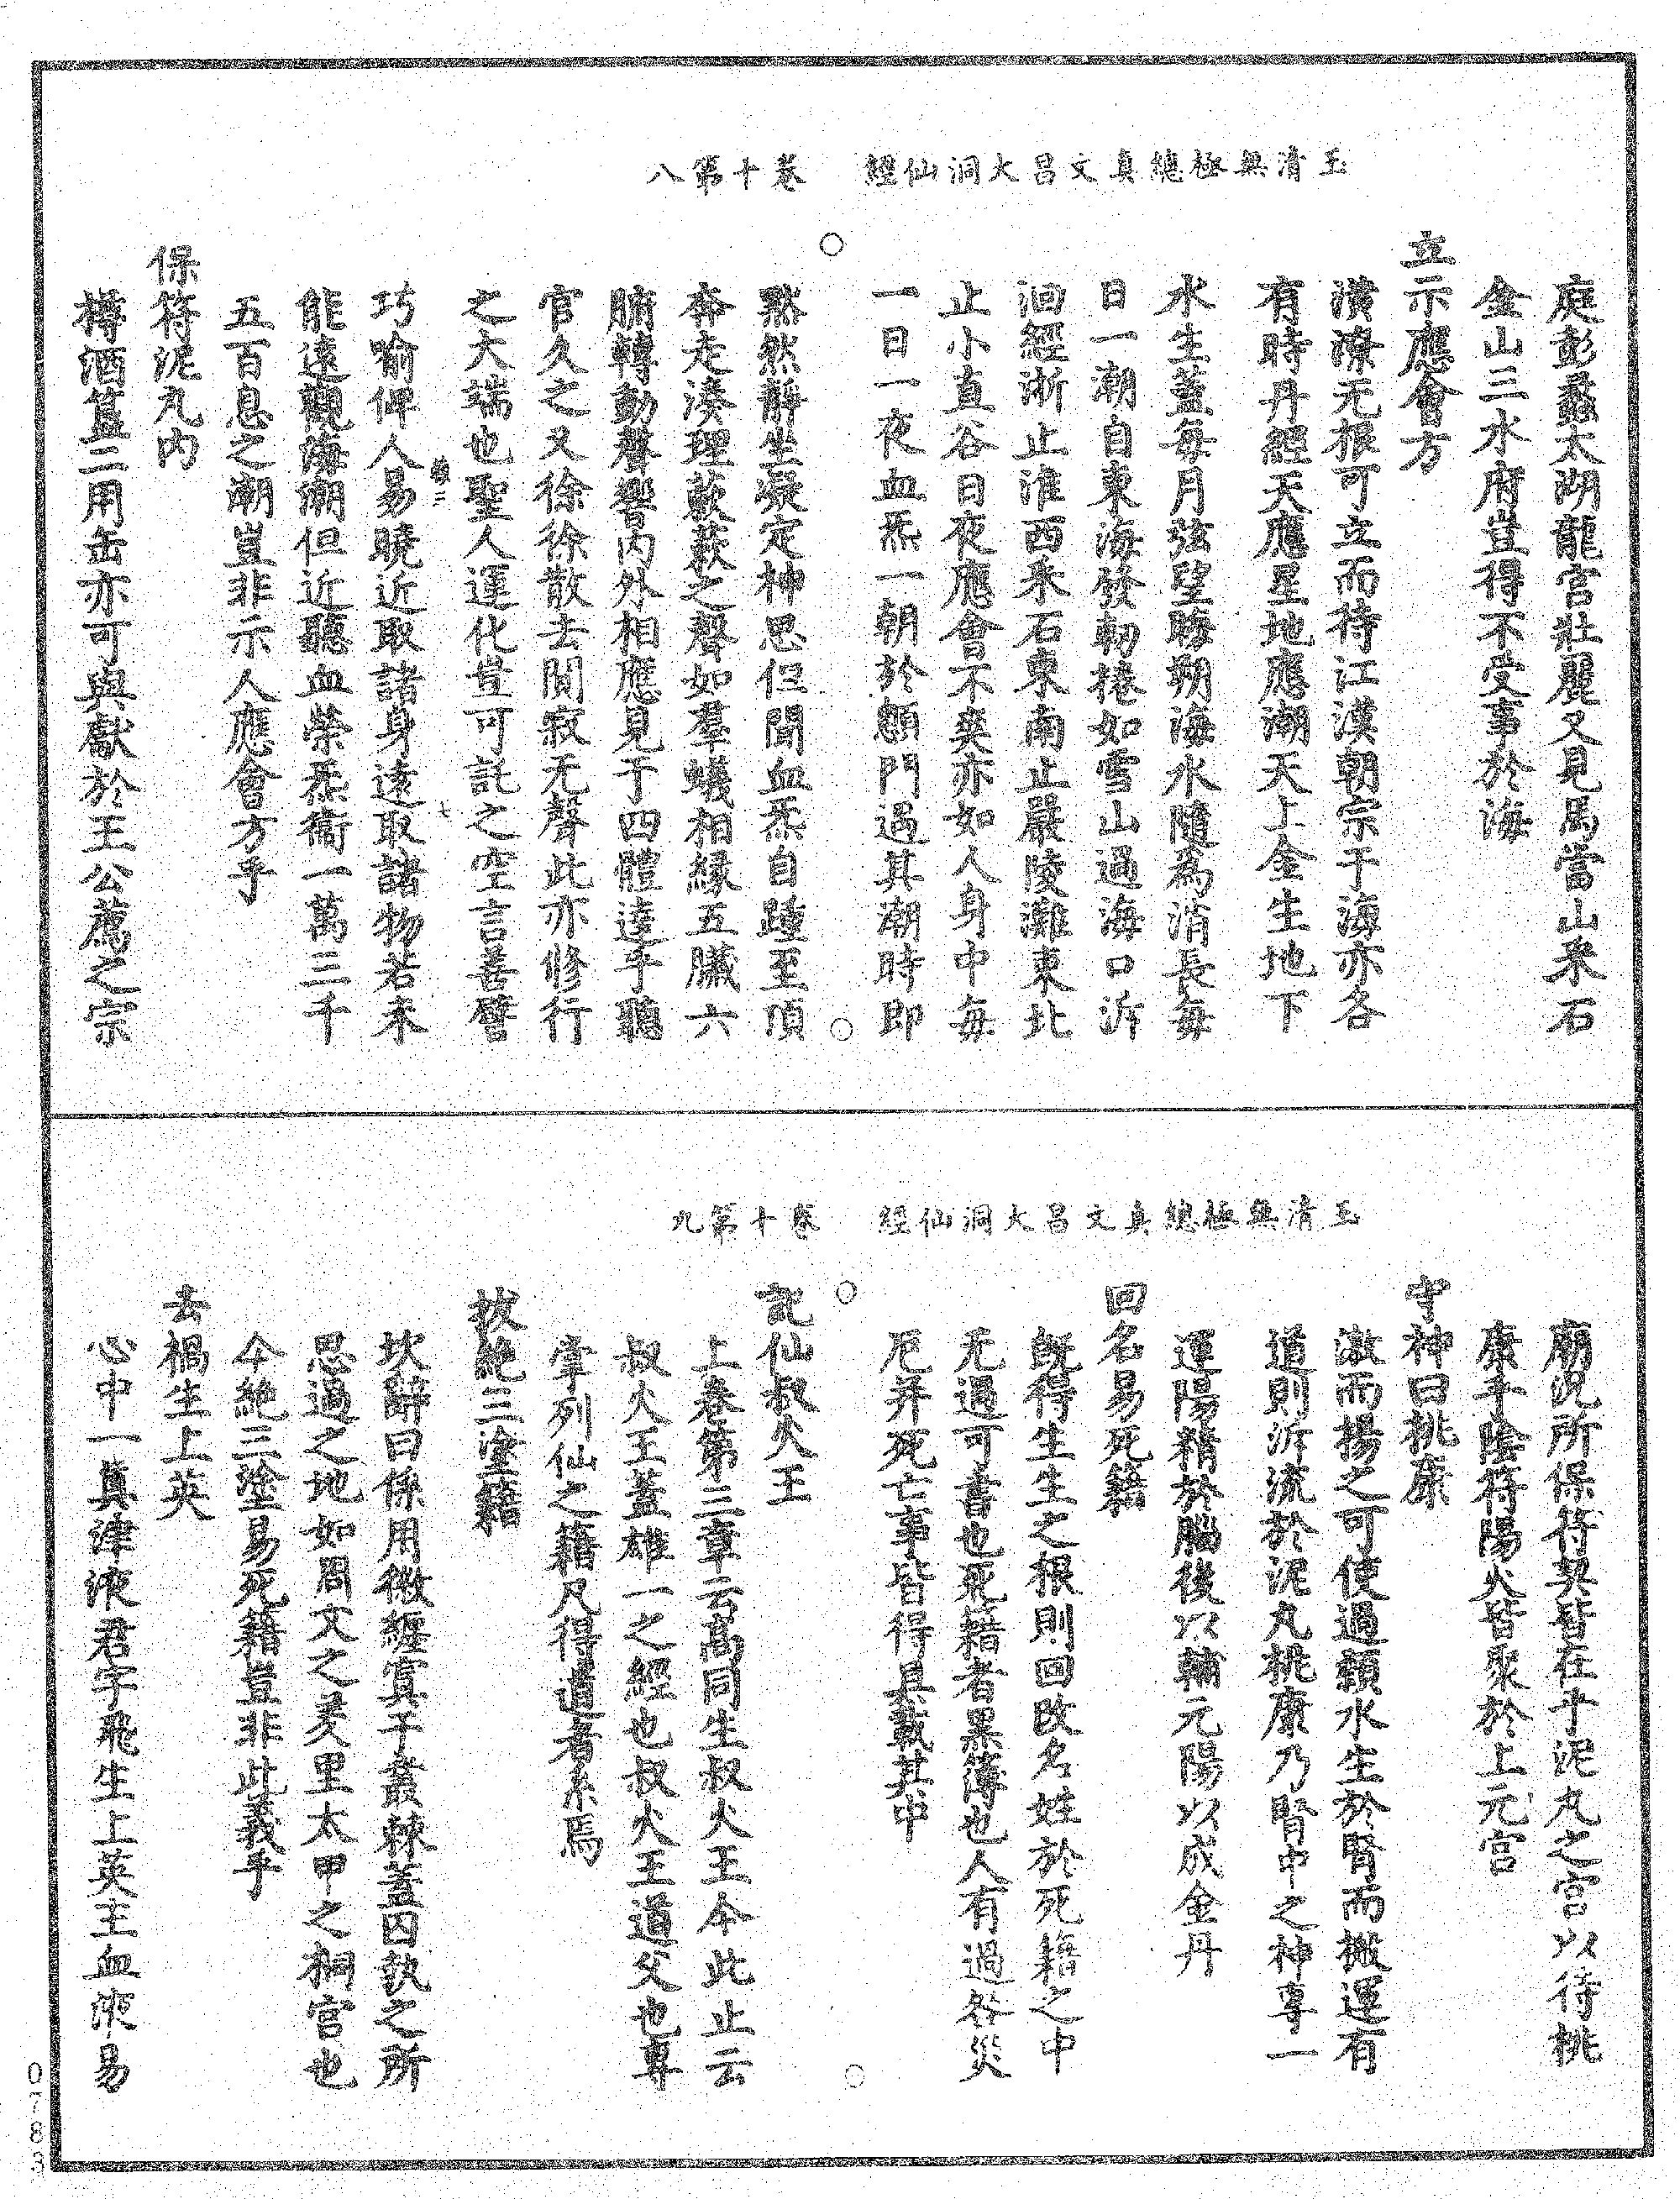 玉清無極總真文昌大洞仙經　卷十第八
庭彭蠡太湖龍宮壯麗又見馬當山釆石
金山三水府豈得不受事於海
立示應會方
潢潦无根可立而待江漢朝宗于海亦各
有時丹經天應星地應潮天上金生地下
水生蓋每月弦望晦朔海水隨為消長每
日一潮自東海發軔捲如雪山過海口泝
洄經浙止淮西釆石東南止嚴陵灘東北
止小直谷日夜應會不爽亦如人身中每
一日一夜血炁一朝於顖門過其潮時即
黙然靜坐凝定神思但聞血炁自踵至頂
奔走湊理蔌蔌之聲如羣蟻相緣五臟六
腑轉動聲響內外相應見于四體達乎聽
官久之又徐徐散去聞寂无聲此亦修行
之大端也聖人運化豈可託之空言善譬
巧喻俾人易曉近取諸身遠取諸物若未
能遠觀海潮但近聽血榮炁衞一萬三千
五百息之潮豈非示人應會方乎
保符泥丸內
樽酒簋二用缶亦可與獻於王公薦之宗
玉清無極總真文昌大洞仙經　卷十第九
廟況所保符契皆在乎泥丸之宮以待桃
康手陰符陽火皆聚於上元宮
守神曰桃康
激而揚之可使過顙水生於腎而搬運有
道則泝流於泥丸桃康乃腎中之神專一
運陽精於腦後以輔元陽以成金丹
回名易死籍
既得生生之根則回改名姓於死籍之中
无過可書也死籍者黑簿也人有過咎災
厄并死亡事皆得具載其中
記仙叔火王
上卷第三章云高同生叔火王今此止云
叔火王蓋雄一之經也叔火王道父也專
掌列仙之籍凡得道者系焉
拔絕三塗籍
坎辭曰係用徽纆寘于叢棘蓋囚執之所
思過之地如周文之羑里太甲之桐宮也
今絕三塗易死籍豈非此義乎
去禍生上英
心中一真津液君字飛生上英主血液易
0783